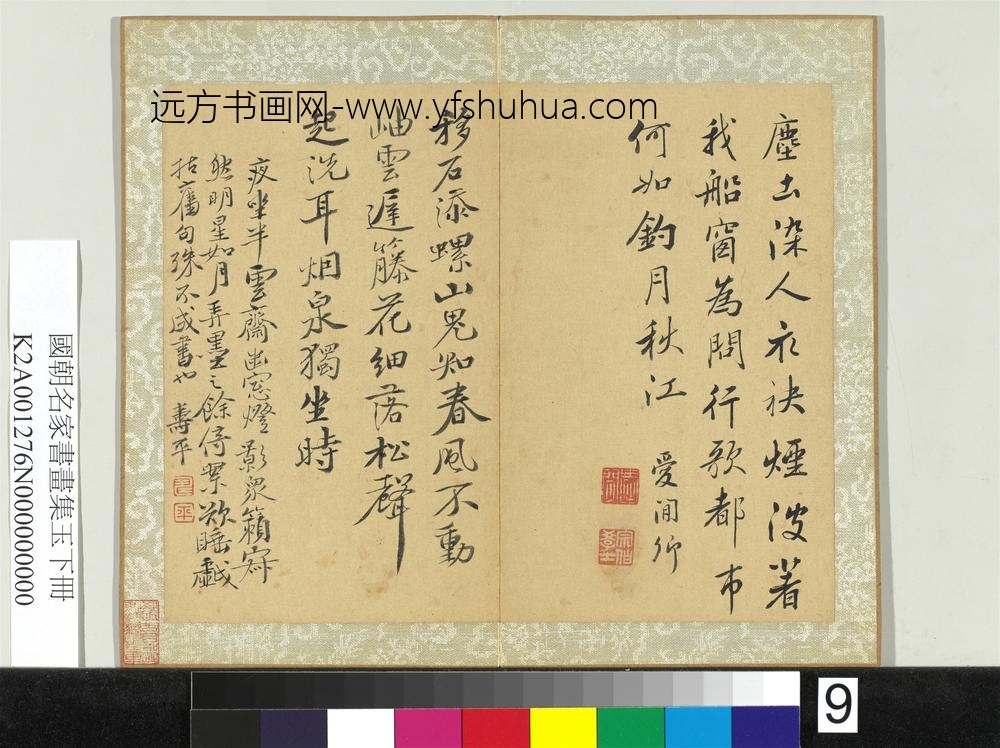 远方书画网-www.yfshuhua.com
塵土染人衣袂煙波著
我船窗為問行歌都市
何如釣月秋江 愛閒何
移石添螺山鬼知春風不動
岫雲遲藤花細落松聲
起洗耳烟泉獨坐時
夜坐半雲齋幽窓燈影泉籟寂
然明星如月弄墨之餘倚案欲睡戲
拈舊句殊不成書也 壽平
國朝名家書畫集玉下冊
K2A001276N000000000
9